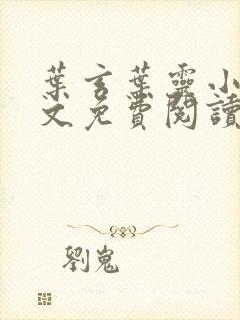 葉言葉靈小
文免費閱讀
劉嵬